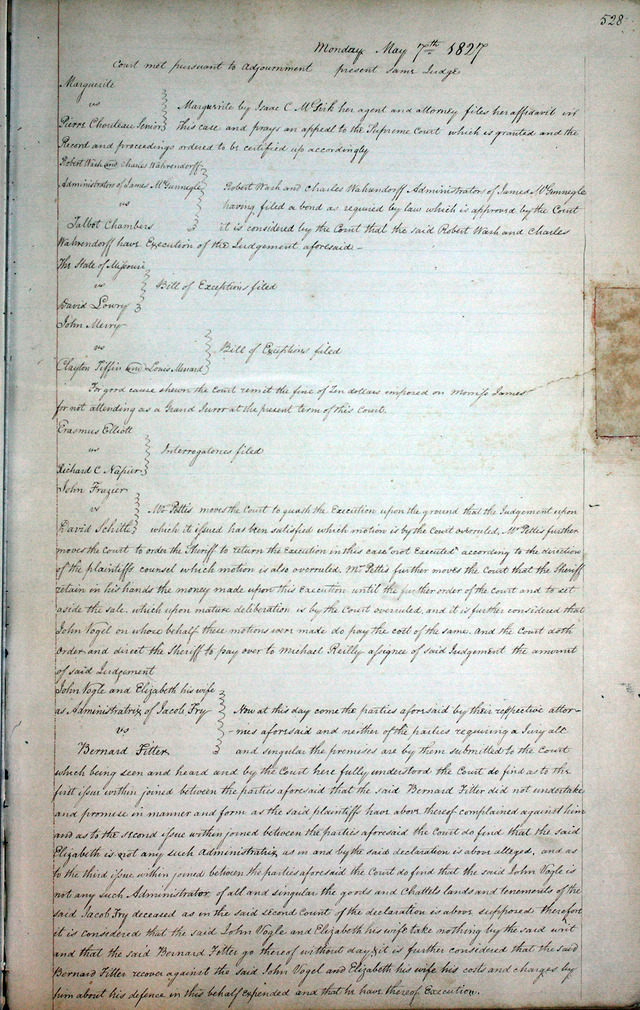 528
Monday May 7th 1827
Court met pursuant to Adjournment present same Judge
Marguerite
vs
Pierre Chouteau Senior
Marguerite by Isaac C McGirk her agent and attorney files her affidavit in
this case and prays an appeal to the Supreme Court which is granted and the
Record and proceedings ordered to be certified up accordingly
Robert Wash and Charles Wahrendorff
Administrator of James McGunnegle
vs
Talbot Chambers
Robert Wash and Charles Wahrendorff Administrators of James McGunnegle
having filed a bond as required by law which is approved by the Court
it is considered by the Court that the said Robert Wash and Charles
Wahrendorff have Execution of the Judgement aforesaid –
The State of Missouri
vs
David Lowry
Bill of Exceptions filed
John Merry
vs
Clayton Tiffin and Louis Menard
Bill of Exceptions filed
For good cause shewn the Court remit the fine of Ten dollars imposed on Morriss James
for not attending as a Grand Juror at the present term of this Court.
Erasmus Elliott
vs
Richard C Napier
Interrogatories filed
John Frazier
vs
David Schitte
Mr Pettis moves the Court to quash the Execution upon the ground that the Judgement upon
which it issued has been satisfied which motion is by the Court overruled, Mr Pettis further
moves the Court to order the Sheriff to return the Execution in this case "not Executed" according to the direction
of the plaintiffs counsel which motion is also overruled. Mr Pettis further moves the Court that the Sheriff
retain in his hands the money made upon this Execution until the further order of the Court and to set
aside the sale. which upon mature deliberation is by the Court overruled, and it is further considered that
John Vogel on whose behalf these motions were made do pay the cost of the same. and the Court doth
order and direct the Sheriff to pay over to Michael Reilly assignee of said Judgement the amount
of said Judgement
John Vogle and Elizabeth his wife
as Administratrix of Jacob Fry
vs
Bernard Fitter
Now at this day come the parties aforesaid by their respective attor-
-nies aforesaid and neither of the parties requiring a Jury all
and singular the premises are by them submitted to the Court
which being seen and heard and by the Court here fully understood the Court do find as to the
first issue within joined between the parties aforesaid that the said Bernard Fitter did not undertake
and promise in manner and form as the said plaintiffs have above thereof complained against him
and as to the second issue within joined between the parties aforesaid the Court do find that the said
Elizabeth is not any such Administratrix as in and by the said declaration is above alleged, and as
to the third issue within joined between the parties aforesaid the Court do find that the said John Vogle is
not any such Administrator of all and singular the goods and Chattels lands and tenements of the
said Jacob Fry deceased as in the said second Count of the declaration is above supposed therefore
it is considered that the said John Vogle and Elizabeth his wife take nothing by the said writ
and that the said Bernard Fitter go thereof without day & it is further considered that the said
Bernard Fitter recover against the said John Vogel and Elizabeth his wife his costs and charges by
him about his defence in this behalf expended and that he have thereof Execution.